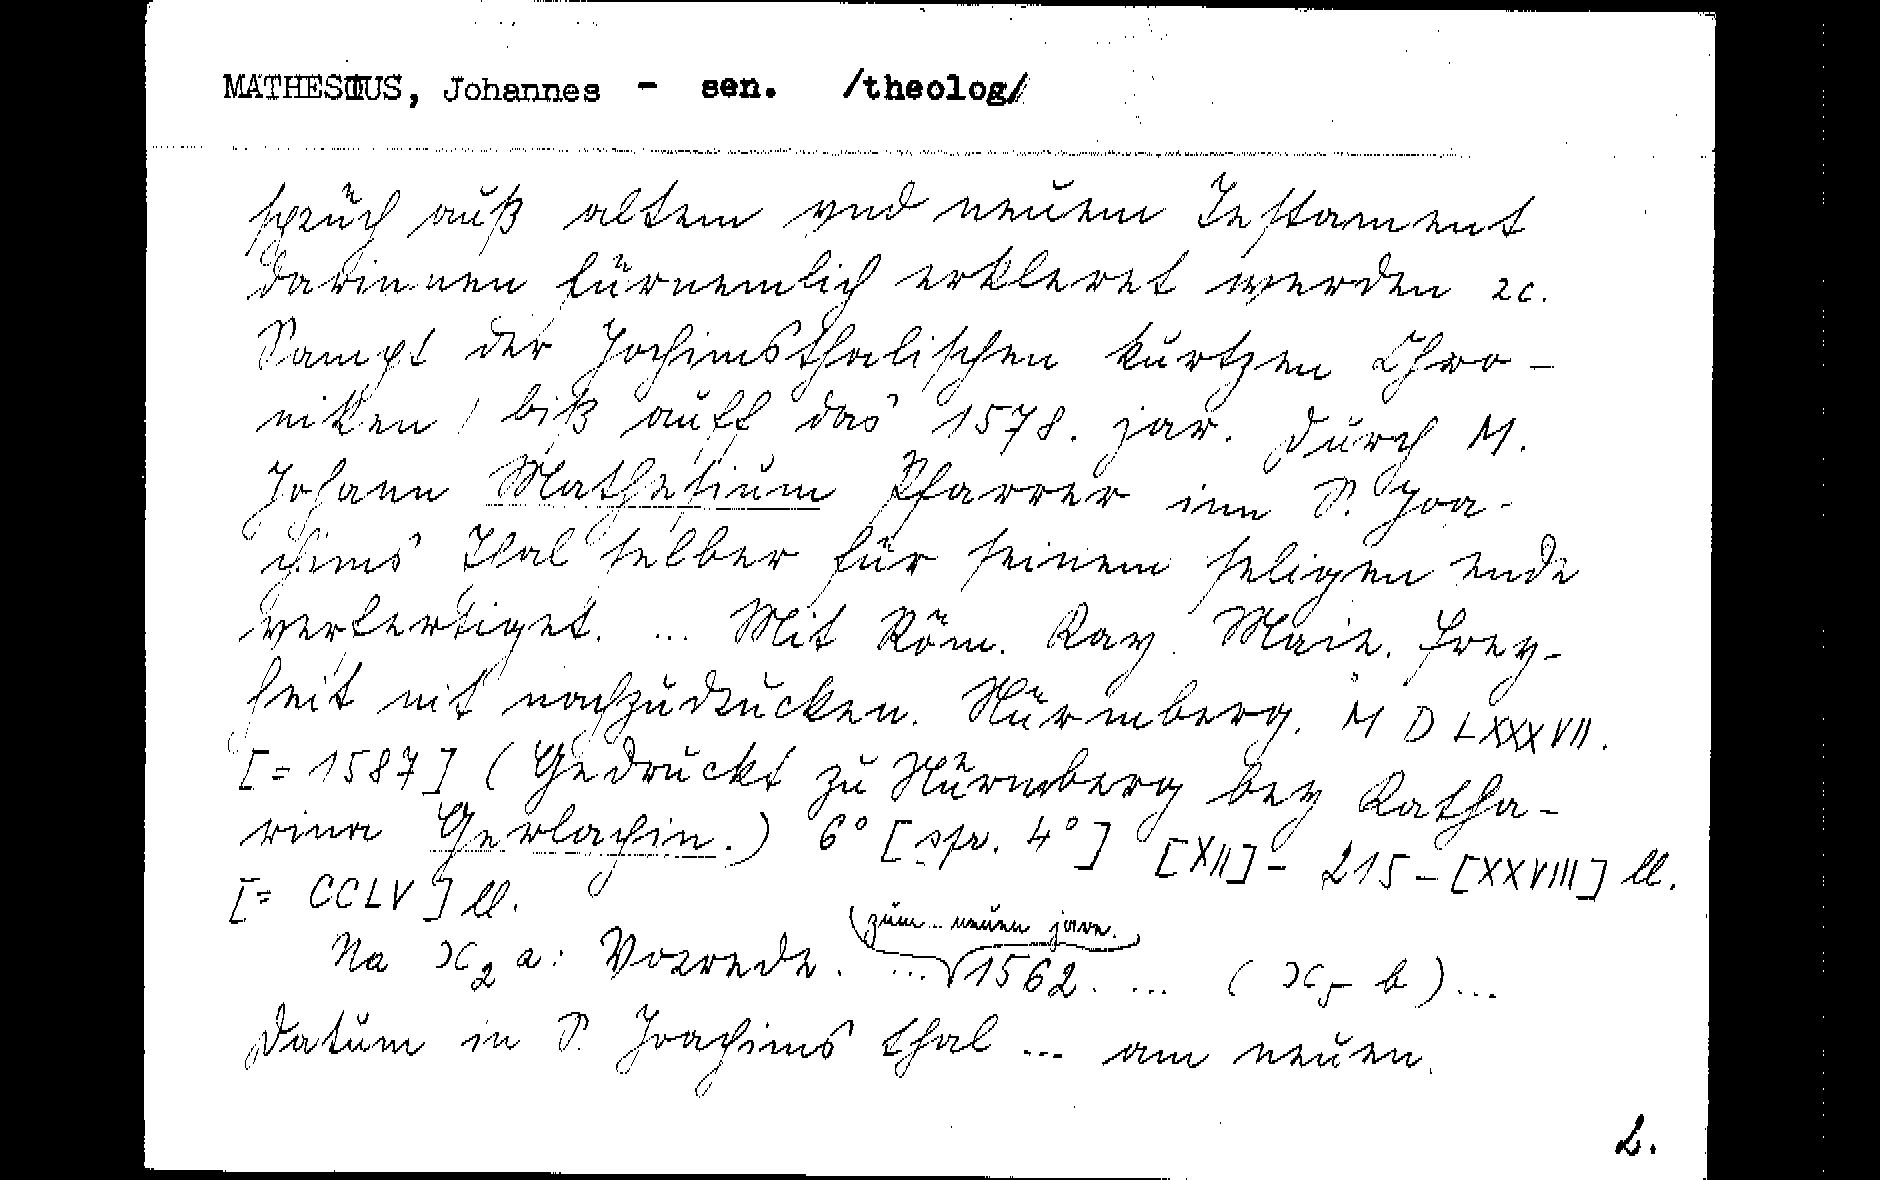 MATHESIUS, Johannes - sen. /theolog/
sprüch auß altem vnd neuem Testament
darinnen fürnemlich erkleret werden ꝛc.
Sampt der Jochimsthalischen kurtzen Chro-
niken / biß auff das 1578. jar. Durch M.
Johann Mathesium Pfarrer inn S. Joa-
chims Thal selber für seinem seligen ende
verfertiget. ... Mit Röm. Kay. Maie. frey-
heit nit nachzudrucken. Nürmberg. M D LXXXVII.
[= 1587] (Gedruckt zu Nürmberg bey Katha-
rina Gerlachin.) 6° [spr. 4°] [XII] - 215 - [XXVIII] ll.
[= CCLV] ll.
zum .. neuen jare.
Na )(2 a: Vorrede. ... 1562. ... ( )(5 b) ...
Datum in S. Joachims thal ... am neuen.
2.